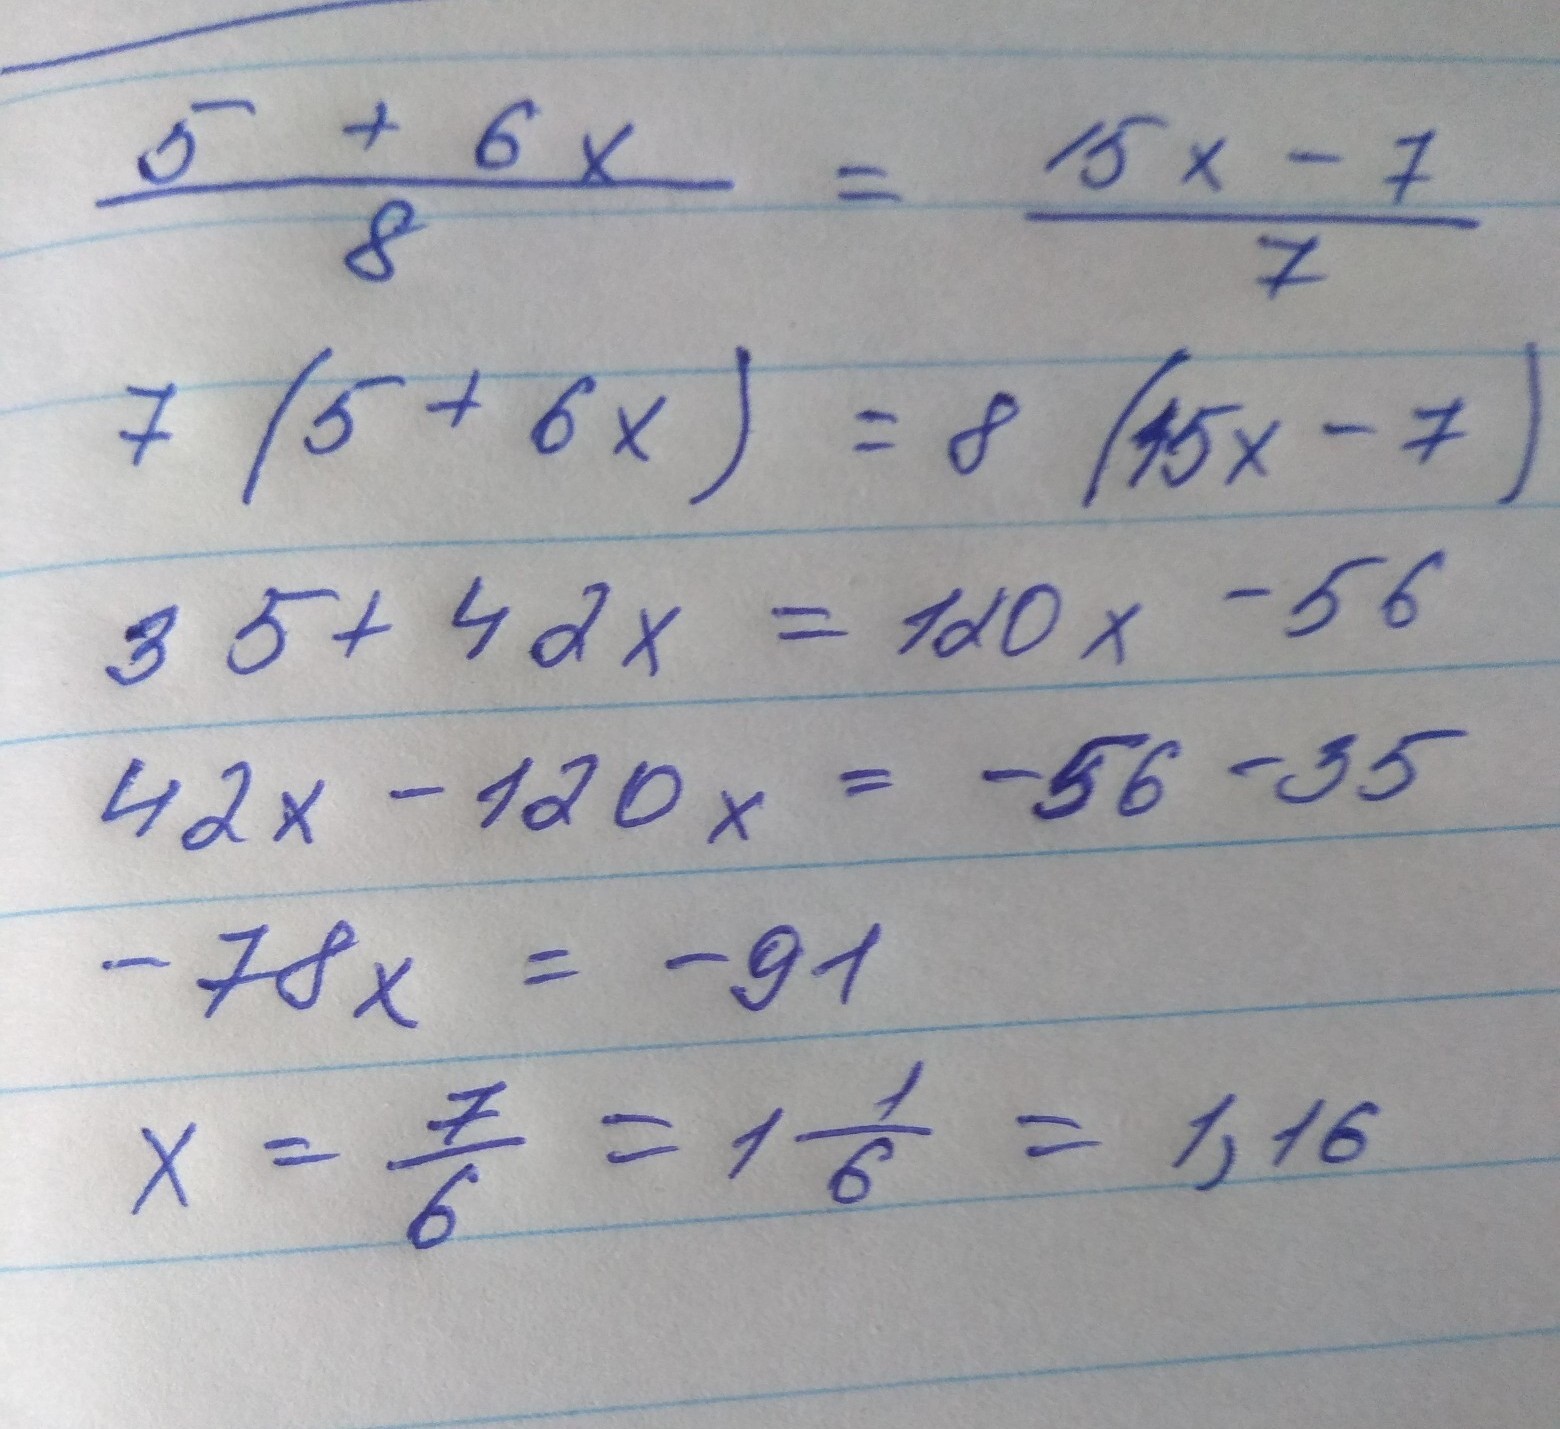 5 + 6x / 8 = 15x - 7 / 7
7 (5 + 6x) = 8 (15x - 7)
35 + 42x = 120x - 56
42x - 120x = -56 - 35
-78x = -91
x = 7/6 = 1 1/6 = 1,16